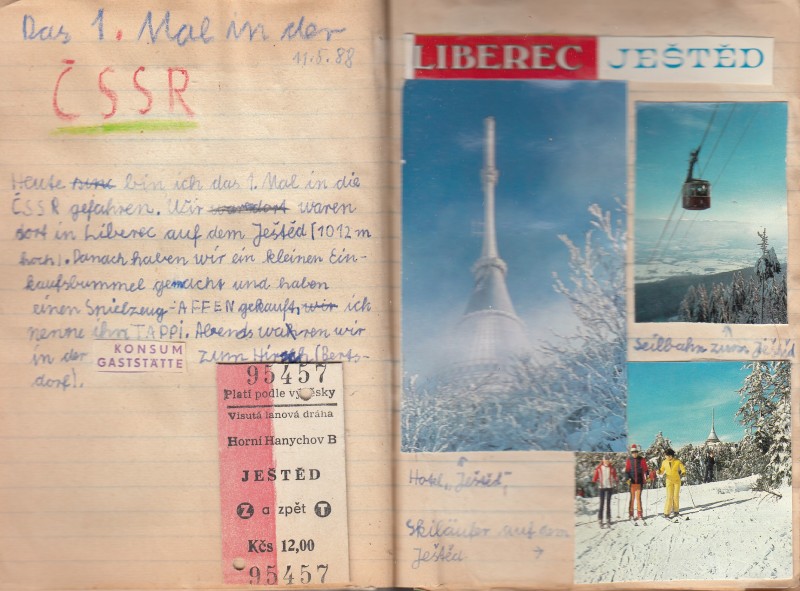 Das 1. Mal in der
11.5.88
ČSSR
Heute sind bin ich das 1. Mal in die
ČSSR gefahren. Wir waren
dort in Liberec auf dem Ještěd (1012 m
hoch). Danach haben wir ein kleinen Ein-
kaufsbummel gemacht und haben
einen Spielzeug-AFFEN gekauft, wir ich
nenne ihn TAPPi. Abends wahren wir
in der KONSUM GASTSTÄTTE zum Hirsch (Berts-
dorf).
95457
Platí podle vyhlášky
Visutá lanová dráha
Horní Hanychov B
JEŠTĚD
Z a zpět T
Kčs 12,00
95457
LIBEREC JEŠTĚD
Seilbahn zum Ještěd
Hotel „Ještěd"
Skiläufer auf dem
Ještěd →